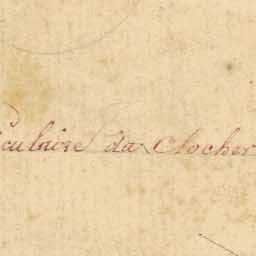 iculaire du Clocher